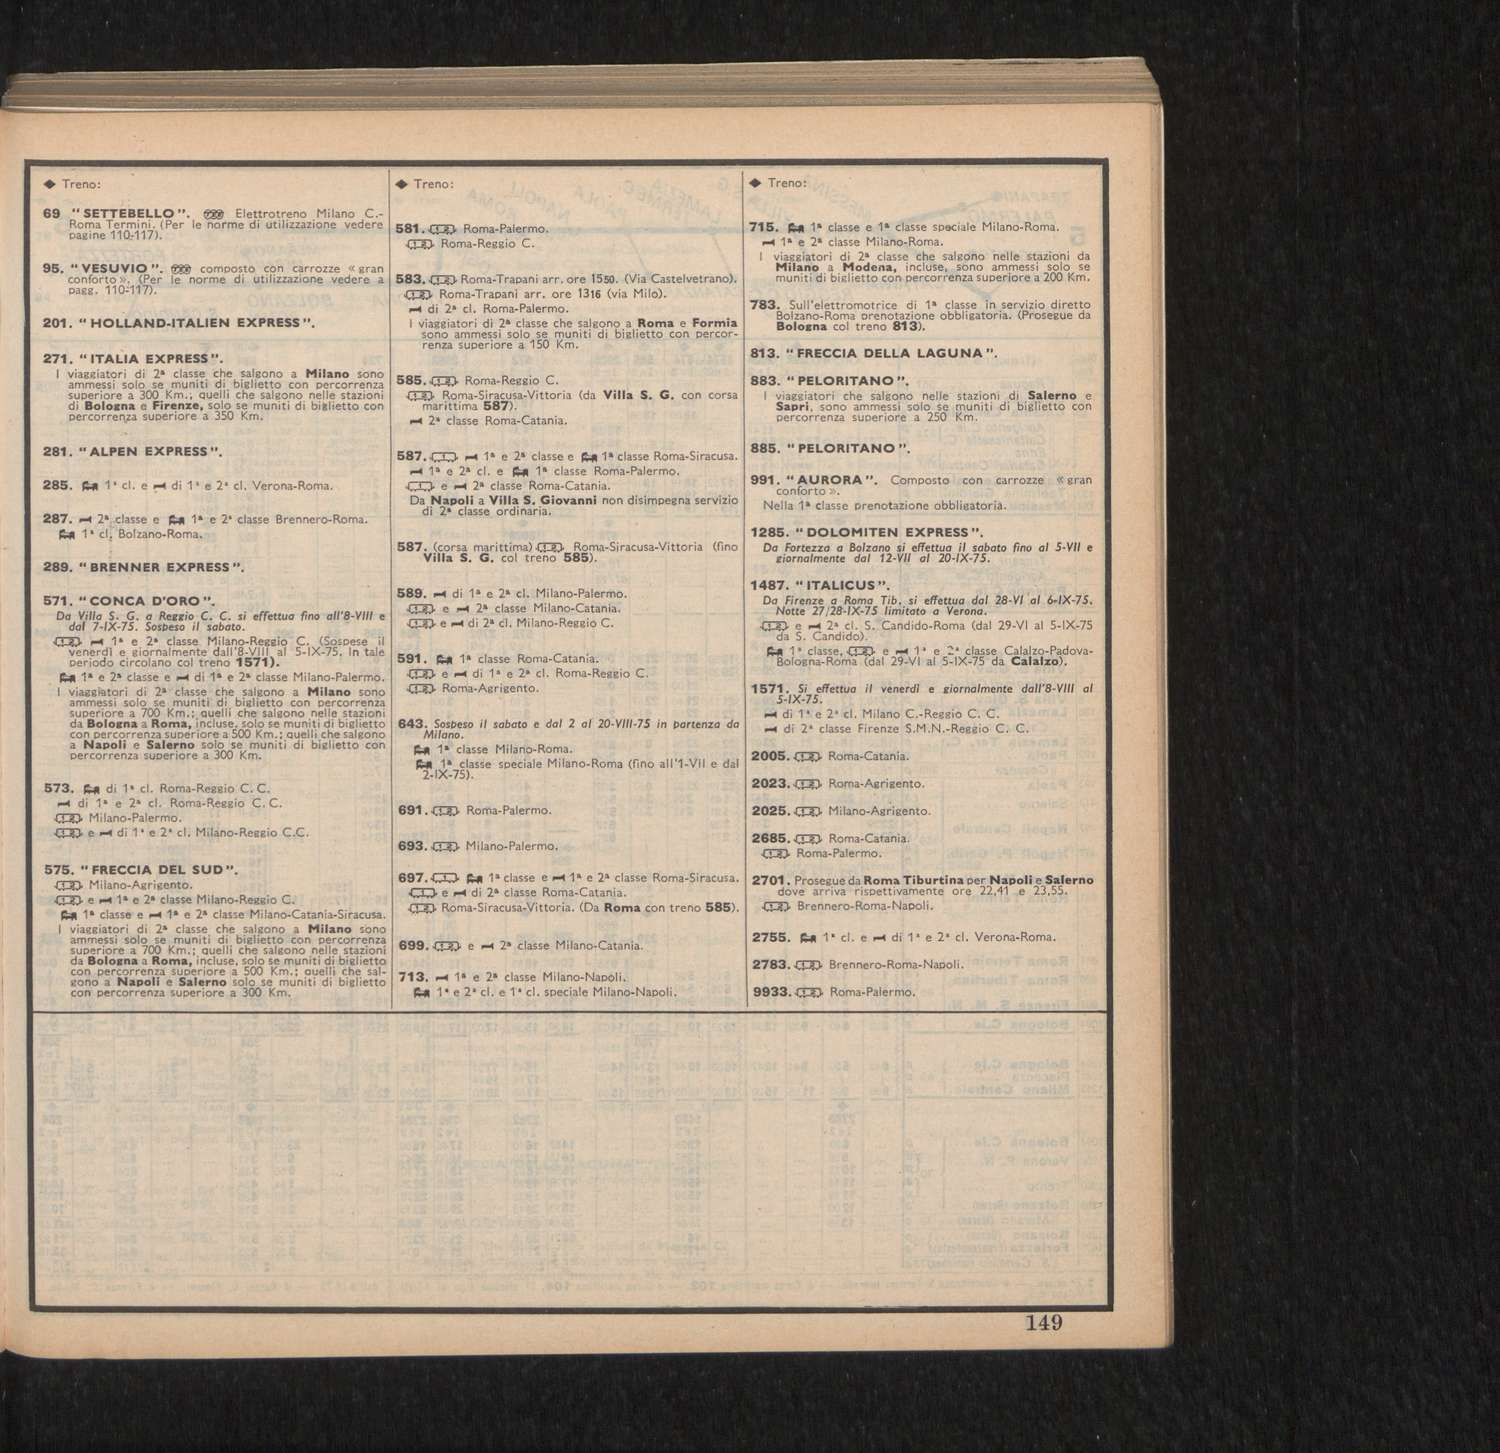 ◆ Treno:
69 "SETTEBELLO". Elettrotreno Milano C.-
Roma Termini. (Per le norme di utilizzazione vedere
pagine 110-117).
95. "VESUVIO". composto con carrozze «gran
conforto». (Per le norme di utilizzazione vedere a
pagg. 110-117).
201. "HOLLAND-ITALIEN EXPRESS".
271. "ITALIA EXPRESS".
I viaggiatori di 2ª classe che salgono a Milano sono
ammessi solo se muniti di biglietto con percorrenza
superiore a 300 Km.; quelli che salgono nelle stazioni
di Bologna e Firenze, solo se muniti di biglietto con
percorrenza superiore a 350 Km.
281. "ALPEN EXPRESS".
285. 1ª cl. e di 1ª e 2ª cl. Verona-Roma.
287. 2ª classe e 1ª e 2ª classe Brennero-Roma.
1ª cl. Bolzano-Roma.
289. "BRENNER EXPRESS".
571. "CONCA D'ORO".
Da Villa S. G. a Reggio C. C. si effettua fino all'8-VIII e
dal 7-IX-75. Sospeso il sabato.
1ª e 2ª classe Milano-Reggio C. (Sospese il
venerdì e giornalmente dall'8-VIII al 5-IX-75. In tale
periodo circolano col treno 1571).
1ª e 2ª classe e di 1ª e 2ª classe Milano-Palermo.
I viaggiatori di 2ª classe che salgono a Milano sono
ammessi solo se muniti di biglietto con percorrenza
superiore a 700 Km.; quelli che salgono nelle stazioni
da Bologna a Roma, incluse, solo se muniti di biglietto
con percorrenza superiore a 500 Km.; quelli che salgono
a Napoli e Salerno solo se muniti di biglietto con
percorrenza superiore a 300 Km.
573. di 1ª cl. Roma-Reggio C. C.
di 1ª e 2ª cl. Roma-Reggio C. C.
Milano-Palermo.
e di 1ª e 2ª cl. Milano-Reggio C.C.
575. "FRECCIA DEL SUD".
Milano-Agrigento.
e 1ª e 2ª classe Milano-Reggio C.
1ª classe e 1ª e 2ª classe Milano-Catania-Siracusa.
I viaggiatori di 2ª classe che salgono a Milano sono
ammessi solo se muniti di biglietto con percorrenza
superiore a 700 Km.; quelli che salgono nelle stazioni
da Bologna a Roma, incluse, solo se muniti di biglietto
con percorrenza superiore a 500 Km.; quelli che sal-
gono a Napoli e Salerno solo se muniti di biglietto
con percorrenza superiore a 300 Km.
◆ Treno:
581. Roma-Palermo.
Roma-Reggio C.
583. Roma-Trapani arr. ore 1550. (Via Castelvetrano).
Roma-Trapani arr. ore 1316 (via Milo).
di 2ª cl. Roma-Palermo.
I viaggiatori di 2ª classe che salgono a Roma e Formia
sono ammessi solo se muniti di biglietto con percor-
renza superiore a 150 Km.
585. Roma-Reggio C.
Roma-Siracusa-Vittoria (da Villa S. G. con corsa
marittima 587).
2ª classe Roma-Catania.
587. 1ª e 2ª classe e 1ª classe Roma-Siracusa.
1ª e 2ª cl. e 1ª classe Roma-Palermo.
e 2ª classe Roma-Catania.
Da Napoli a Villa S. Giovanni non disimpegna servizio
di 2ª classe ordinaria.
587. (corsa marittima) Roma-Siracusa-Vittoria (fino
Villa S. G. col treno 585).
589. di 1ª e 2ª cl. Milano-Palermo.
e 2ª classe Milano-Catania.
e di 2ª cl. Milano-Reggio C.
591. 1ª classe Roma-Catania.
e di 1ª e 2ª cl. Roma-Reggio C.
Roma-Agrigento.
643. Sospeso il sabato e dal 2 al 20-VIII-75 in partenza da
Milano.
1ª classe Milano-Roma.
1ª classe speciale Milano-Roma (fino all'1-VII e dal
2-IX-75).
691. Roma-Palermo.
693. Milano-Palermo.
697. 1ª classe e 1ª e 2ª classe Roma-Siracusa.
e di 2ª classe Roma-Catania.
Roma-Siracusa-Vittoria. (Da Roma con treno 585).
699. e 2ª classe Milano-Catania.
713. 1ª e 2ª classe Milano-Napoli.
1ª e 2ª cl. e 1ª cl. speciale Milano-Napoli.
◆ Treno:
715. 1ª classe e 1ª classe speciale Milano-Roma.
1ª e 2ª classe Milano-Roma.
I viaggiatori di 2ª classe che salgono nelle stazioni da
Milano a Modena, incluse, sono ammessi solo se
muniti di biglietto con percorrenza superiore a 200 Km.
783. Sull'elettromotrice di 1ª classe in servizio diretto
Bolzano-Roma prenotazione obbligatoria. (Prosegue da
Bologna col treno 813).
813. "FRECCIA DELLA LAGUNA".
883. "PELORITANO".
I viaggiatori che salgono nelle stazioni di Salerno e
Sapri, sono ammessi solo se muniti di biglietto con
percorrenza superiore a 250 Km.
885. "PELORITANO".
991. "AURORA". Composto con carrozze «gran
conforto».
Nella 1ª classe prenotazione obbligatoria.
1285. "DOLOMITEN EXPRESS".
Da Fortezza a Bolzano si effettua il sabato fino al 5-VII e
giornalmente dal 12-VII al 20-IX-75.
1487. "ITALICUS".
Da Firenze a Roma Tib. si effettua dal 28-VI al 6-IX-75.
Notte 27/28-IX-75 limitato a Verona.
e 2ª cl. S. Candido-Roma (dal 29-VI al 5-IX-75
da S. Candido).
1ª classe, e 1ª e 2ª classe Calalzo-Padova-
Bologna-Roma (dal 29-VI al 5-IX-75 da Calalzo).
1571. Si effettua il venerdì e giornalmente dall'8-VIII al
5-IX-75.
di 1ª e 2ª cl. Milano C.-Reggio C. C.
di 2ª classe Firenze S.M.N.-Reggio C. C.
2005. Roma-Catania.
2023. Roma-Agrigento.
2025. Milano-Agrigento.
2685. Roma-Catania.
Roma-Palermo.
2701. Prosegue da Roma Tiburtina per Napoli e Salerno
dove arriva rispettivamente ore 22,41 e 23,55.
Brennero-Roma-Napoli.
2755. 1ª cl. e di 1ª e 2ª cl. Verona-Roma.
2783. Brennero-Roma-Napoli.
9933. Roma-Palermo.
149